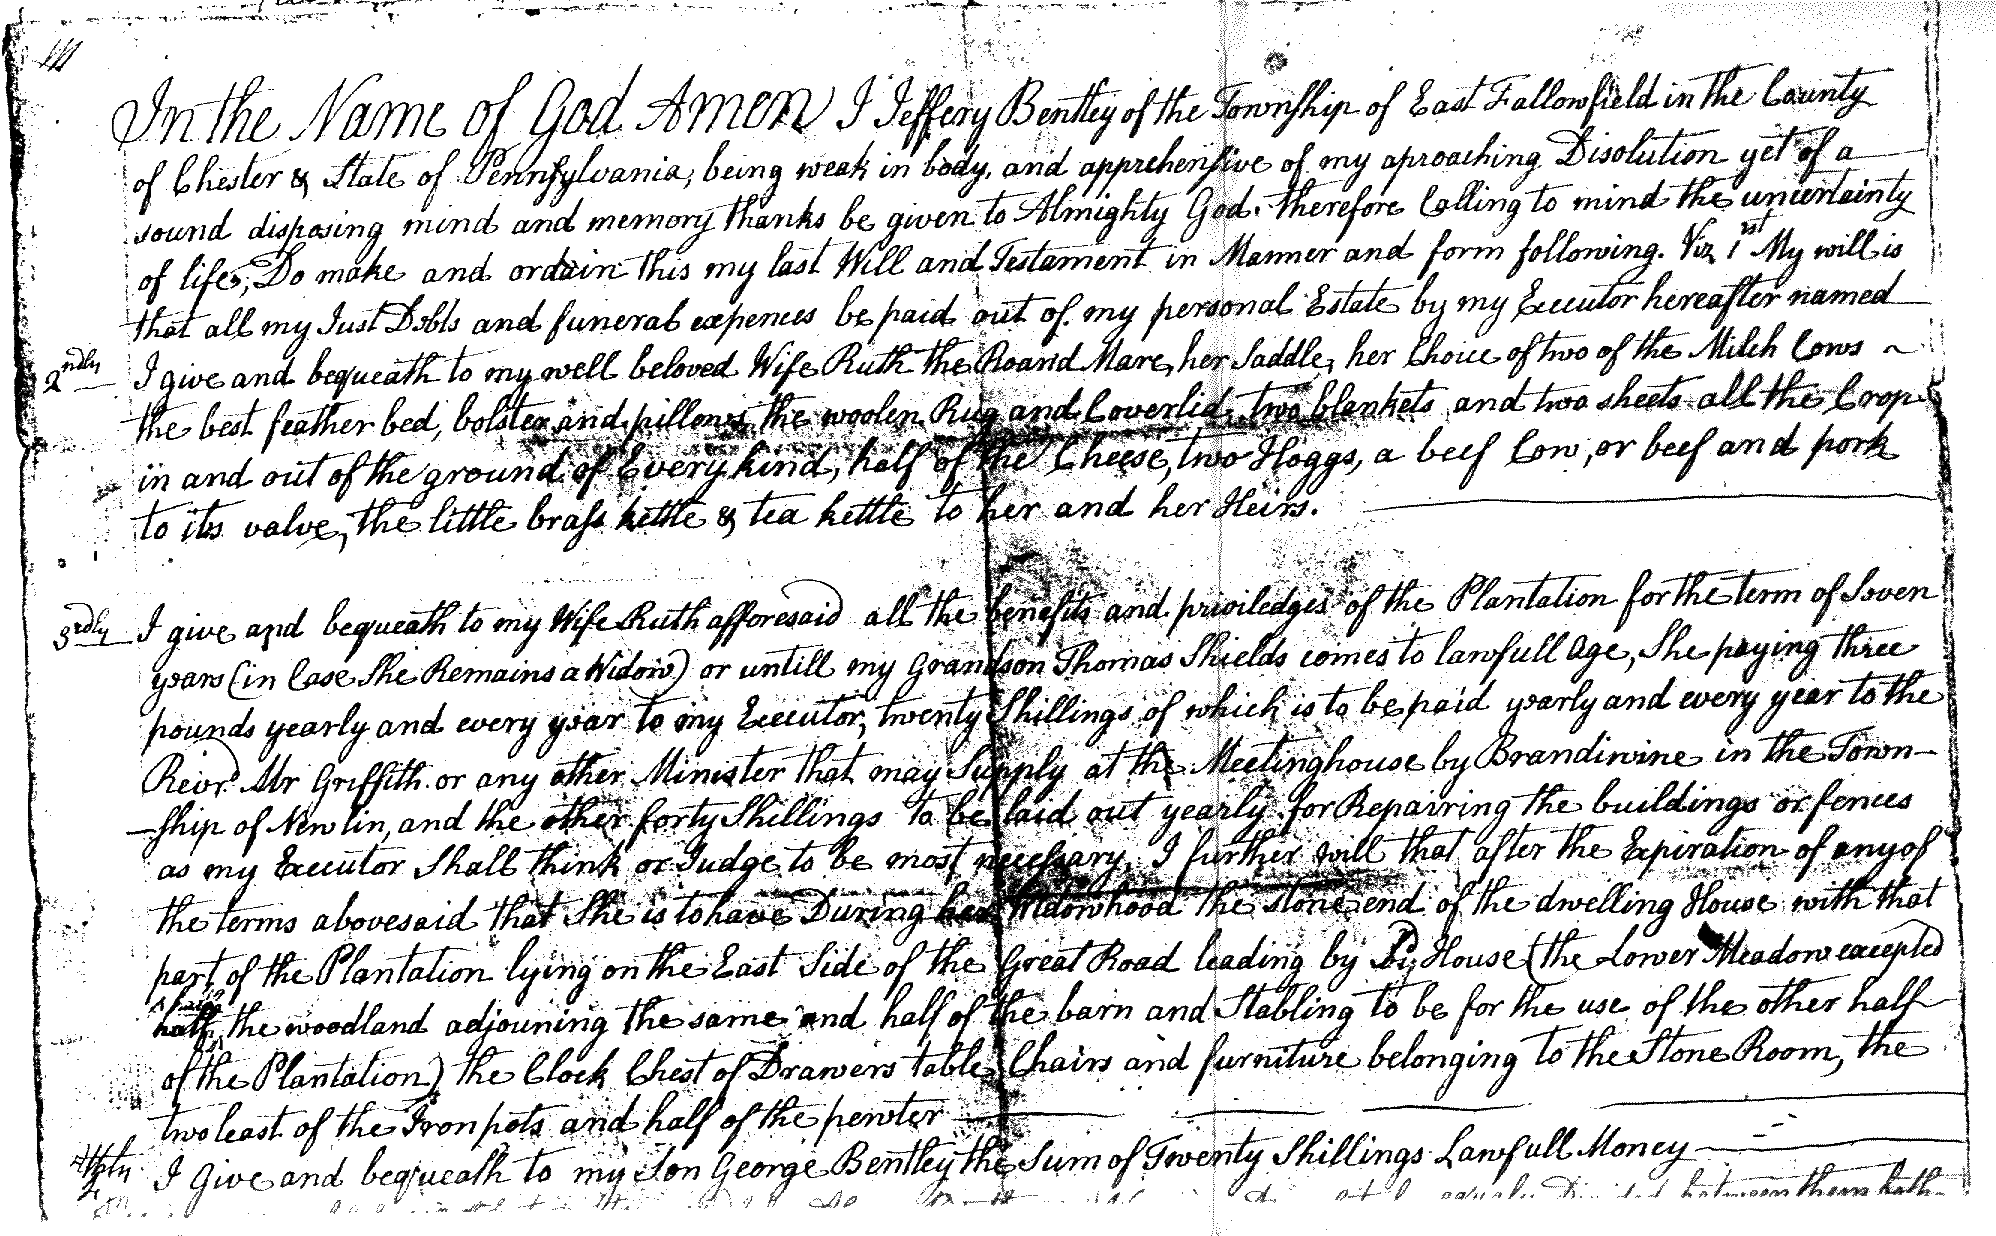 In the Name of God Amen I Jeffery Bentley of the Township of East Fallowfield in the County
of Chester & State of Pennsylvania, being weak in body, and apprehensive of my aproaching Disolution yet of a
sound disposing mind and memory thanks be given to Almighty God. therefore Calling to mind the uncertainty
of life, Do make and ordain this my last Will and Testament in Manner and form following. Viz 1st My will is
that all my Just Debts and funeral expences be paid out of my personal Estate by my Executor hereafter named
2ndly I give and bequeath to my well beloved Wife Ruth the Roand Mare, her Saddle, her Choice of two of the Milch Cows
the best feather bed, bolster and pillows, the woolen Rug and Coverlid, two blankets and two sheets all the Crop
in and out of the ground of Every kind, half of the Cheese, two Hoggs, a beef Cow, or beef and pork
to its valve, the little brass kettle & tea kettle to her and her Heirs.
3rdly I give and bequeath to my Wife Ruth afforesaid all the benefits and priviledges of the Plantation for the term of Seven
years (in Case She Remains a Widow) or untill my Grandson Thomas Shields comes to lawfull Age, She paying three
pounds yearly and every year to my Executor, twenty Shillings of which is to be paid yearly and every year to the
Revr. Mr Griffith or any other Minister that may Supply at the Meetinghouse by Brandiwine in the Town-
-ship of Newlin, and the other forty Shillings to be laid out yearly for Repairing the buildings or fences
as my Executor Shall think or Judge to be most necessary I further will that after the Expiration of any of
the terms abovesaid that She is to have During her Widowhood the stone end of the dwelling House with that
part of the Plantation lying on the East Side of the Great Road leading by Sd House (the Lower Meadow excepted
half the woodland adjouning the same and half of the barn and Stabling to be for the use of the other half
of the Plantation) the Clock Chest of Drawers table Chairs and furniture belonging to the Stone Room, the
two least of the Iron pots and half of the pewter
4thly I Give and bequeath to my Son George Bentley the Sum of Twenty Shillings Lawfull Money
equaly Divided between them both